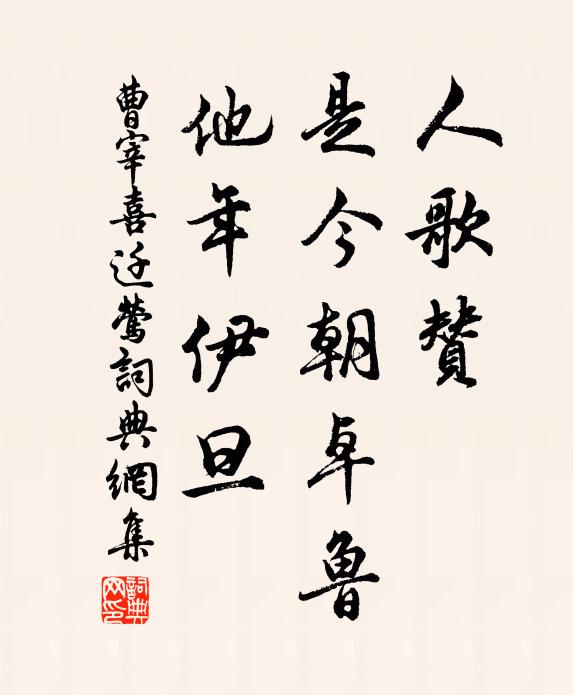 人歌贊
是今朝卓魯
他年伊旦
曹宰喜迁鶯詞典網集
詞典
网印